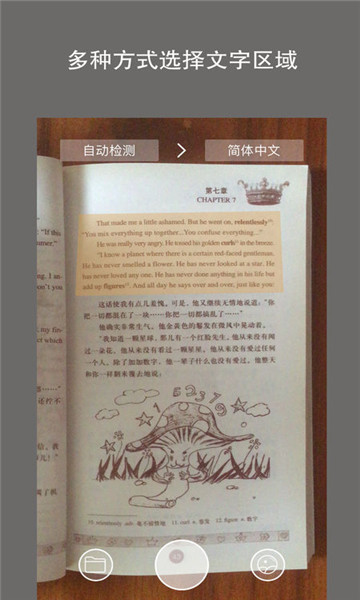 多种方式选择文字区域
自动检测
简体中文
第七章
CHAPTER 7
That made me a little ashamed. But he went on, relentlessly
"You mix everything up together...You confuse everything..."
He was really very angry. He tossed his golden curls in the breeze.
"I know a planet where there is a certain red-faced gentleman.
He has never smelled a flower. He has never looked at a star. He
has never loved any one. He has never done anything in his life but
add up figures. And all day he says over and over, just like you:
这话使我有点儿羞愧。可是,他又继续无情地说道:“你
把一切都混在了一块……你把一切都搞乱了……”
他确实非常生气。他金黄色的鬈发在微风中晃动着。
“我知道一颗星球,那儿有一个红脸先生。他从来没有闻
过一朵花,他从来没有看过一颗星星,他从来没有爱过任何
一个人,除了加加数字,他一辈子什么也没有爱过,他整天
和你一样翻来覆去地说:
10. relentlessly adv. 毫不留情地 11. curl n. 鬈发 12. figure n. 数字